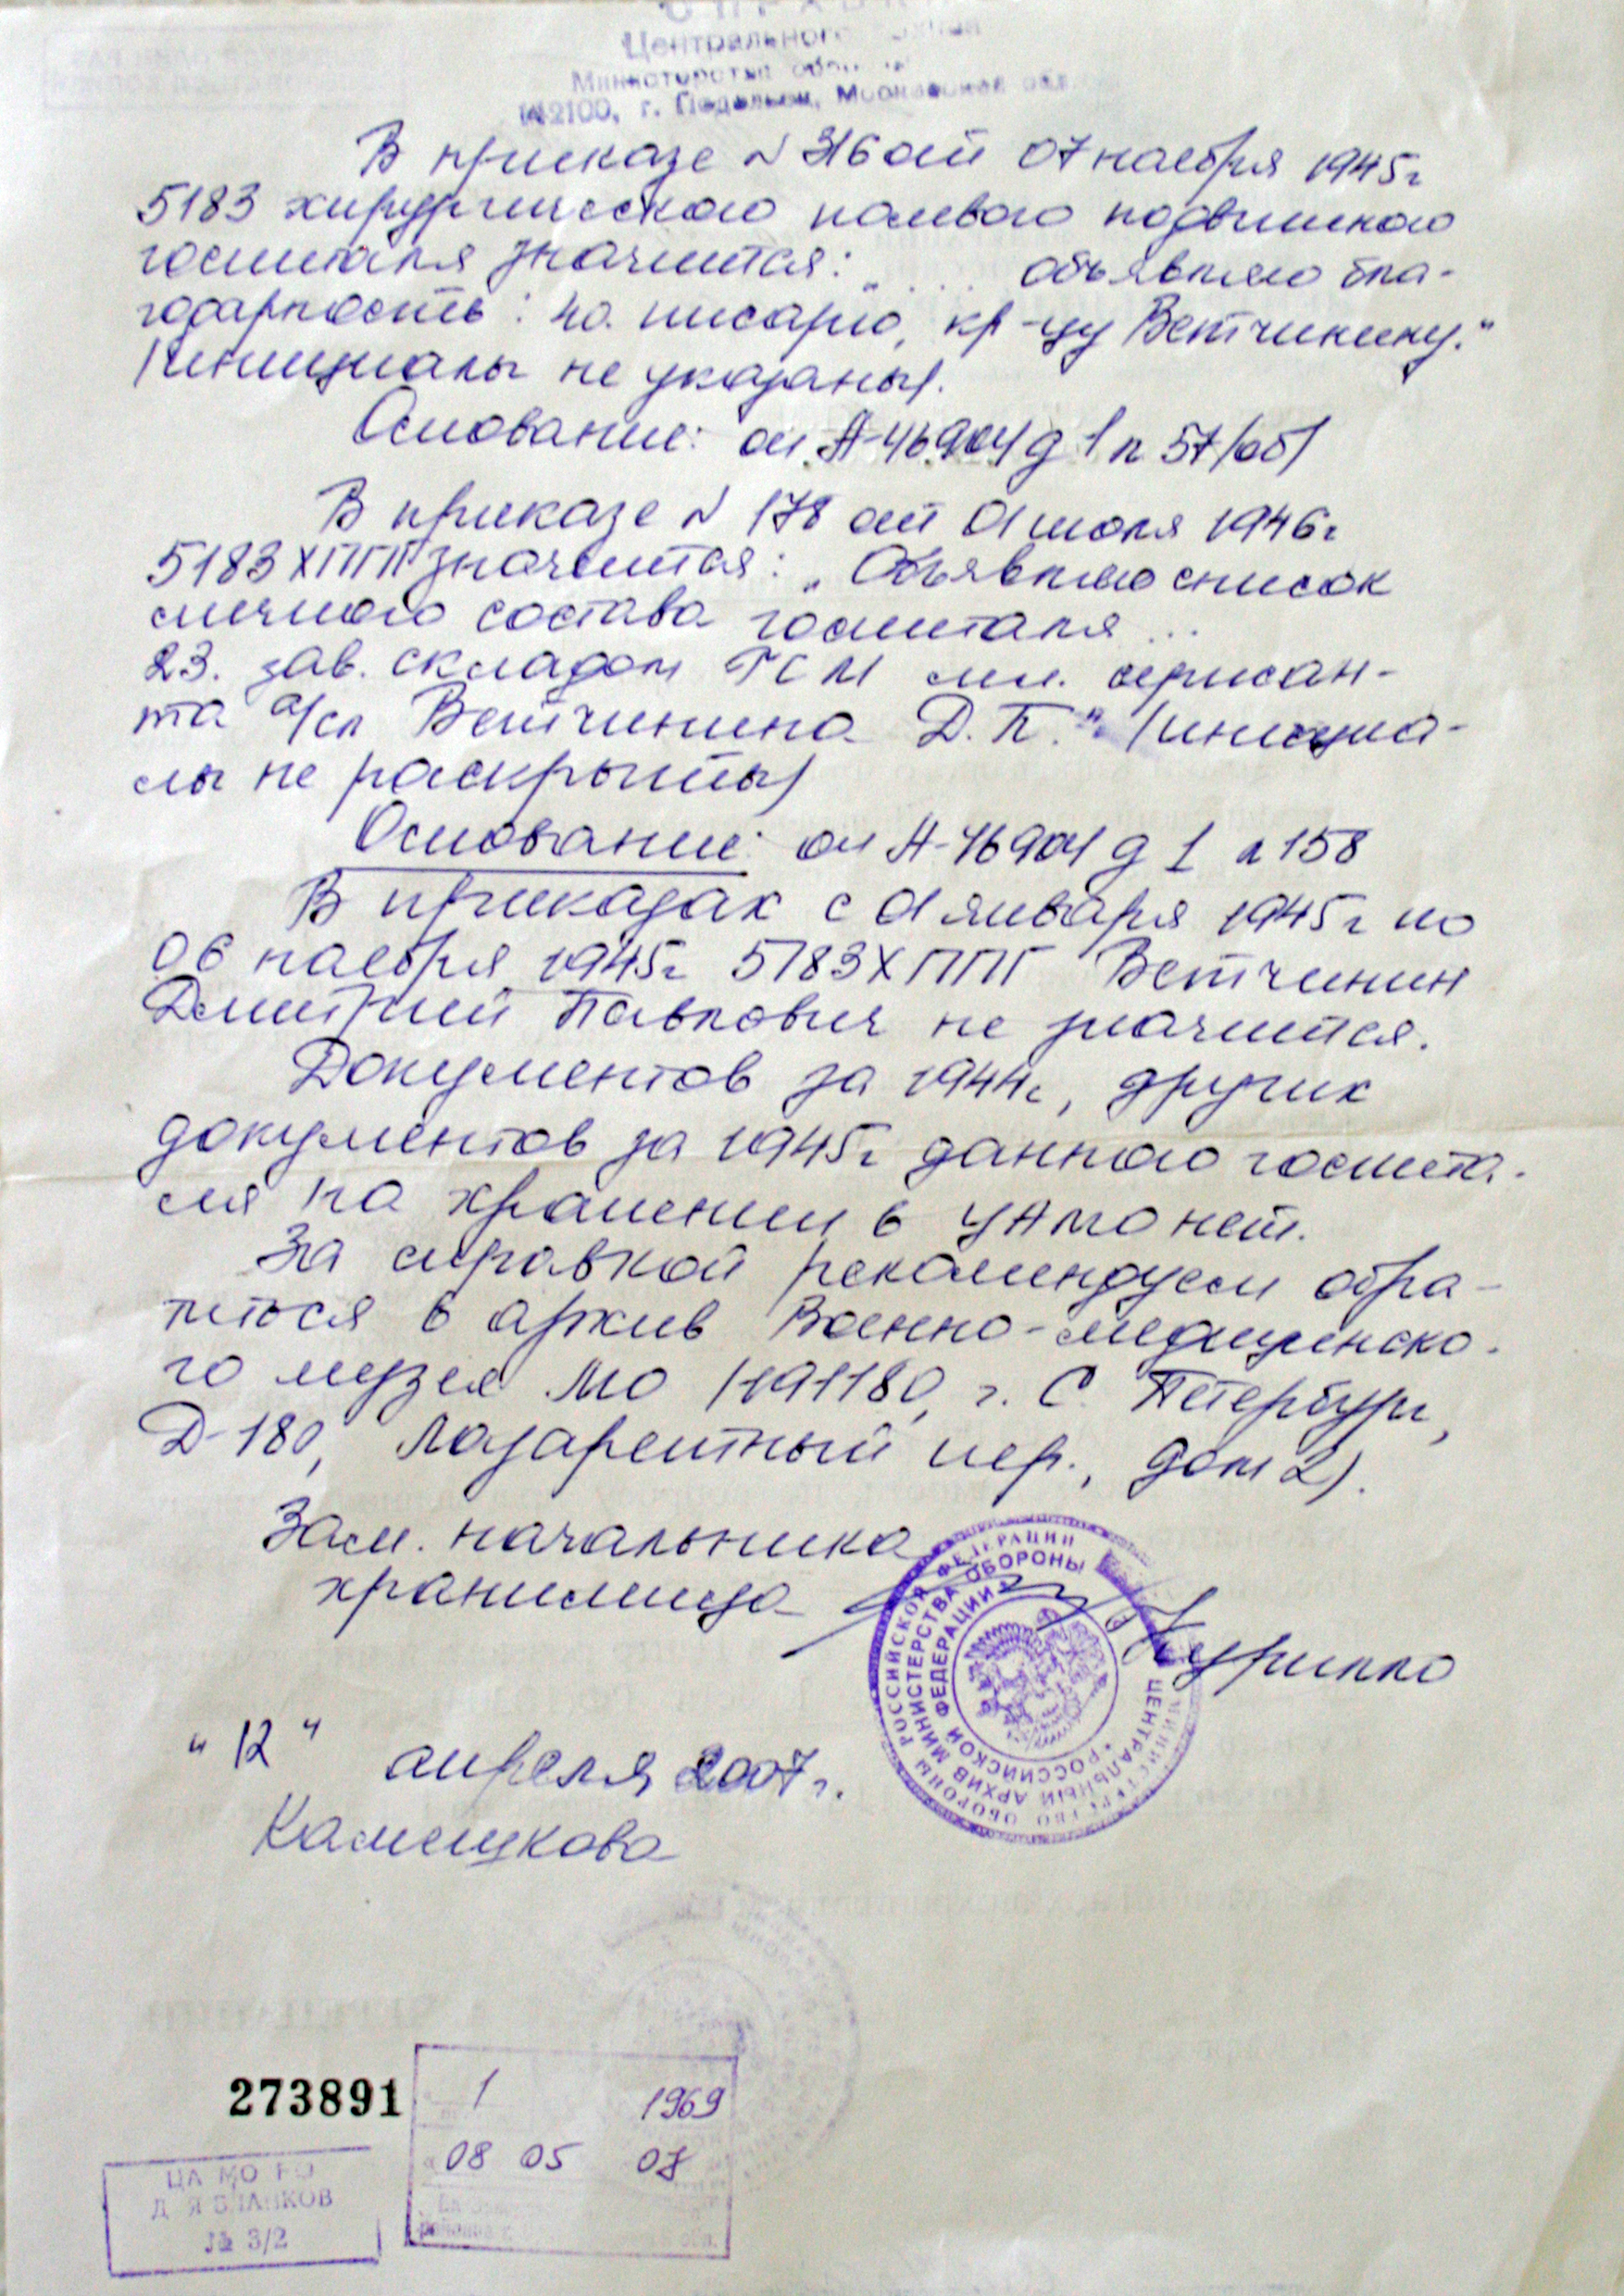 Центрального
Министерства
142100, г. Подольск, Московская обл.
В приказе N 316 от 07 ноября 1945г
5183 хирургического полевого подвижного
госпиталя значится: „ .... объявляю бла-
годарность: ... писарю, кр-цу Ветчинину."
(инициалы не указаны).
Основание: оп А-46904 д 1 л 57/об/
В приказе N 178 от 01 июля 1946г
5183 ХППГ значится: „Объявляю список
личного состава госпиталя ...
23. зав. складом ГСМ мл. сержан-
та а/сл Ветчинина Д.П." (инициа-
лы не раскрыты)
Основание: оп А-46904 д 1 л 158
В приказах с 01 января 1945г по
06 ноября 1945г 5183 ХППГ Ветчинин
Дмитрий Павлович не значится.
Документов за 1944г, других
документов за 1945г данного госпита-
ля на хранении в ЦАМО нет.
За справкой рекомендуем обра-
титься в архив Военно-медицинско-
го музея МО (191180, г. С. Петербург,
Д-180, Лазаретный пер., дом 2).
Зам. начальника
хранилища
Курилло
МИНИСТЕРСТВО ОБОРОНЫ РОССИЙСКОЙ ФЕДЕРАЦИИ
ЦЕНТРАЛЬНЫЙ АРХИВ МИНИСТЕРСТВА ОБОРОНЫ
РОССИЙСКОЙ ФЕДЕРАЦИИ
"12" апреля 2007г.
Камешкова
273891
1 1969
08 05 07
ЦА МО РФ
ДЛЯ БЛАНКОВ
№ 3/2